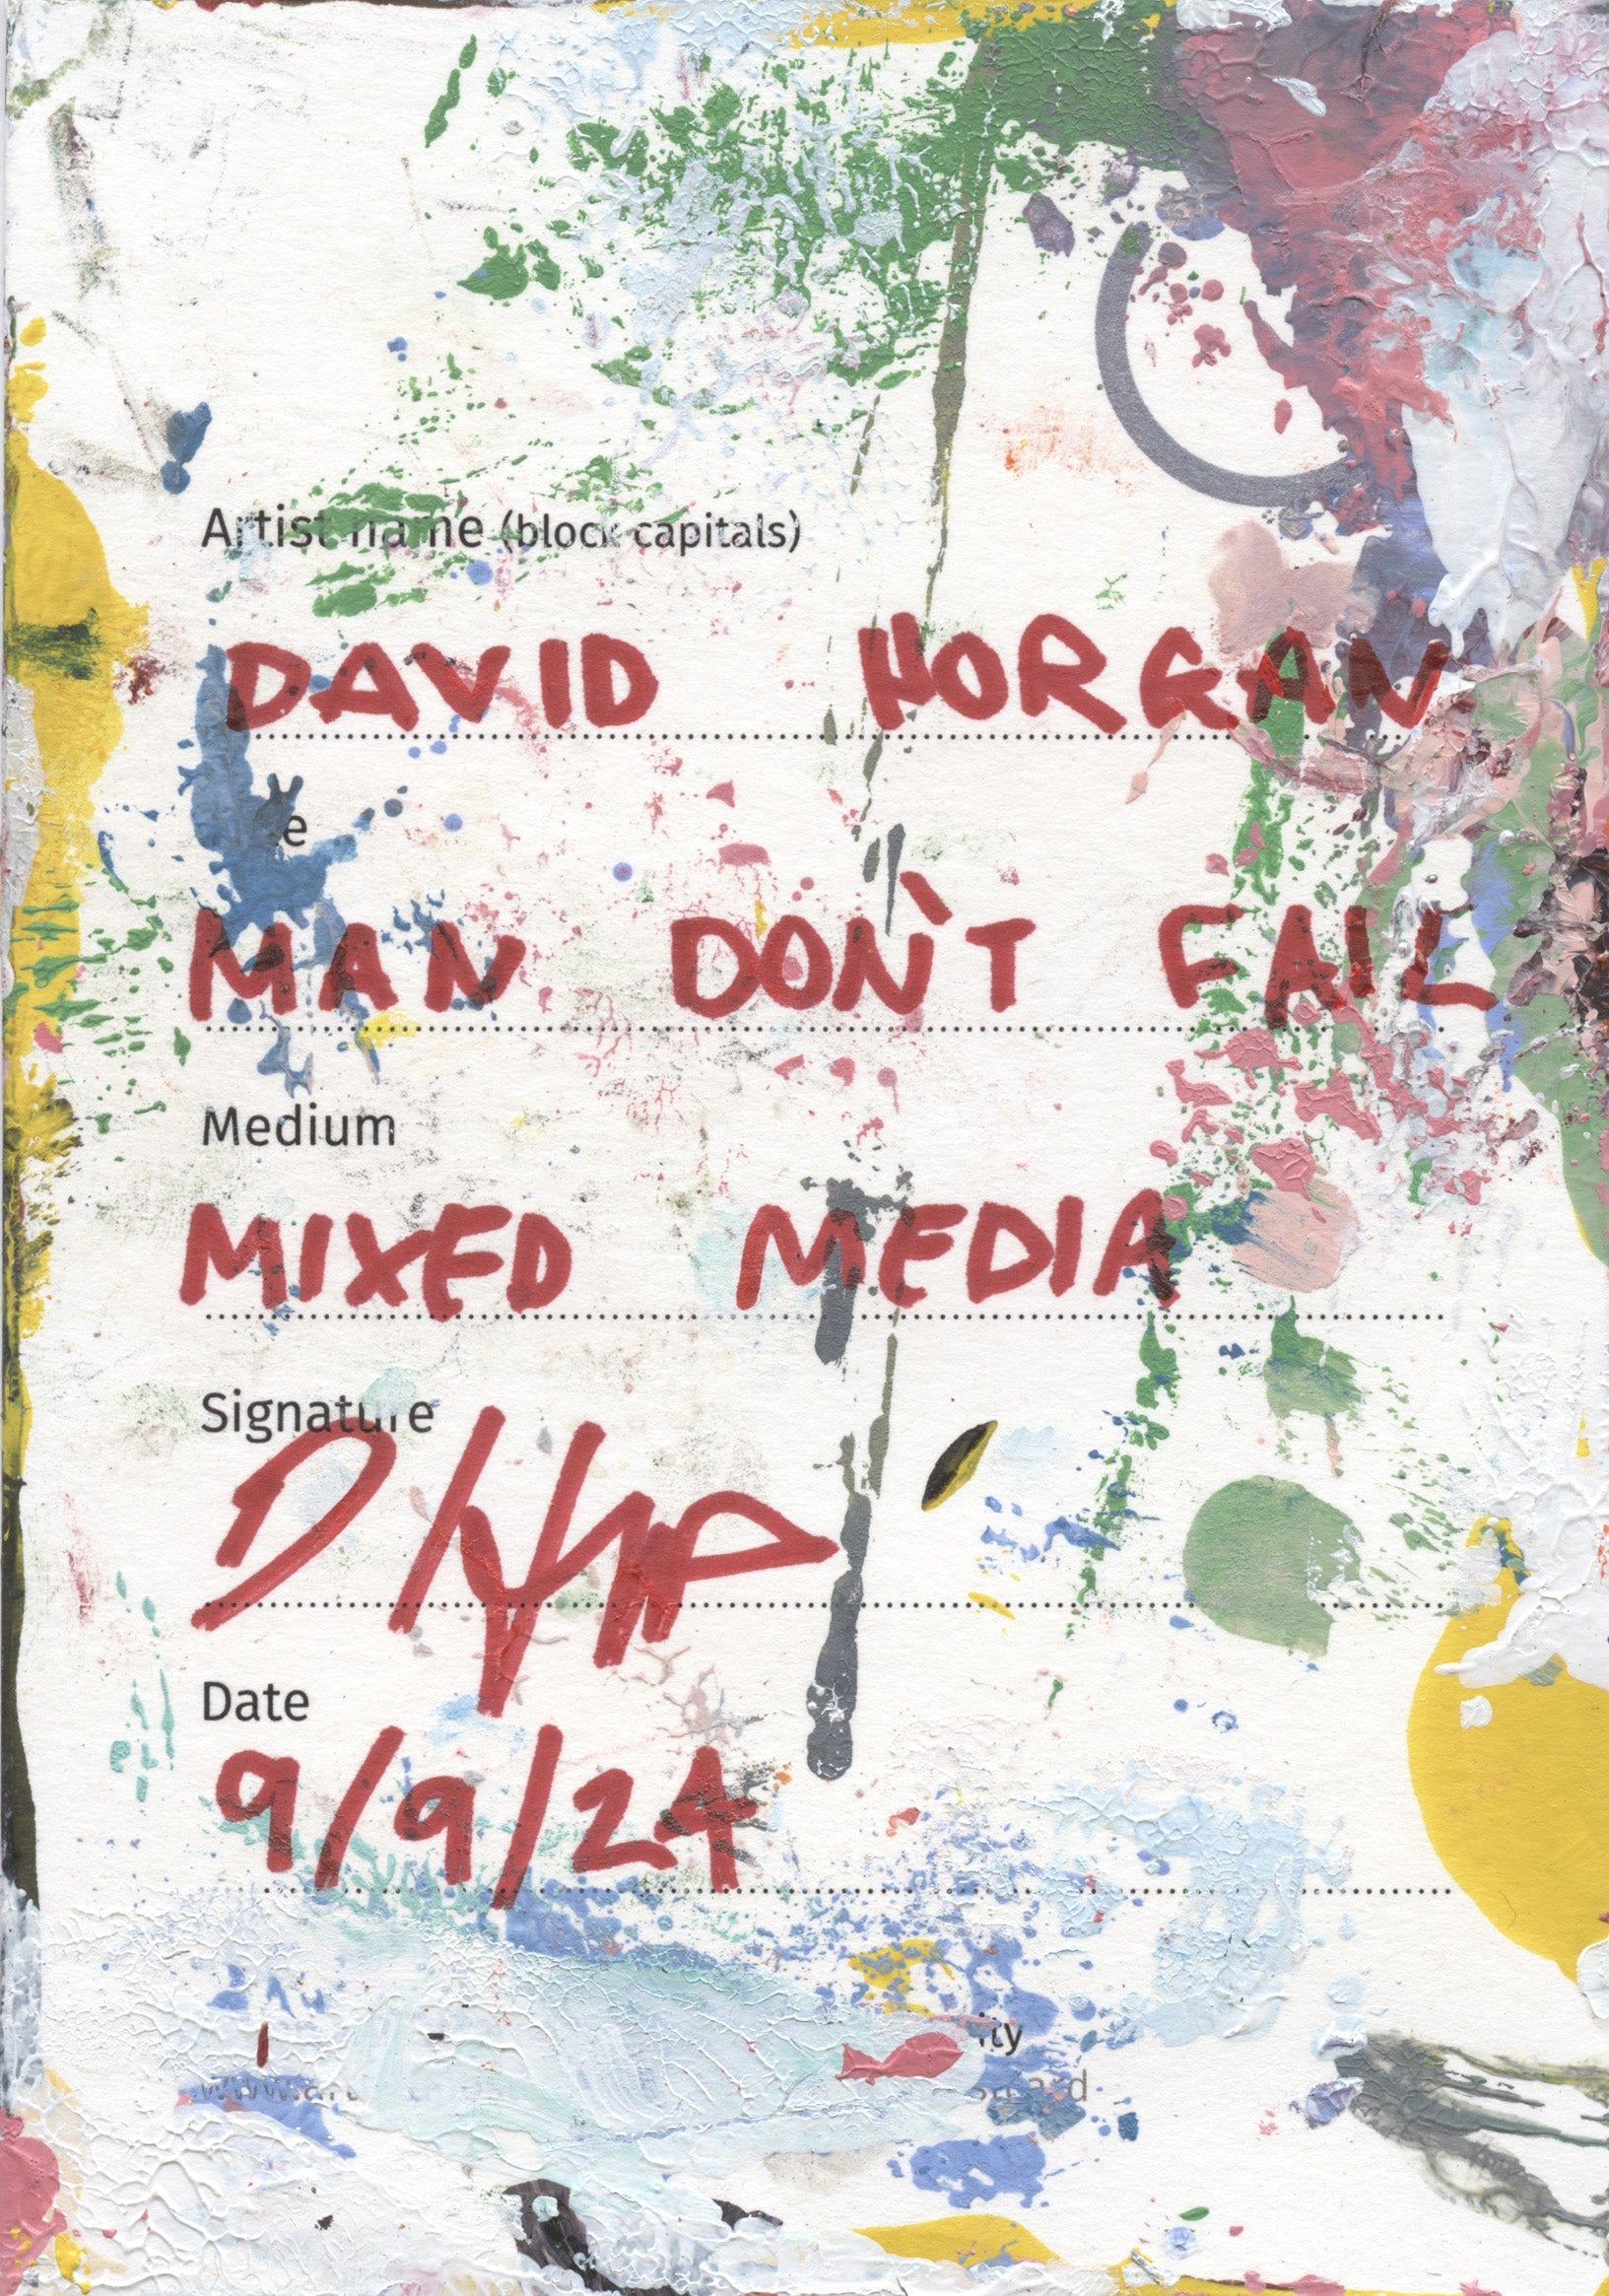 Artist name (block capitals)
DAVID HORGAN
MAN DON'T FAIL
Medium
MIXED MEDIA
Signature
Date
9/9/24